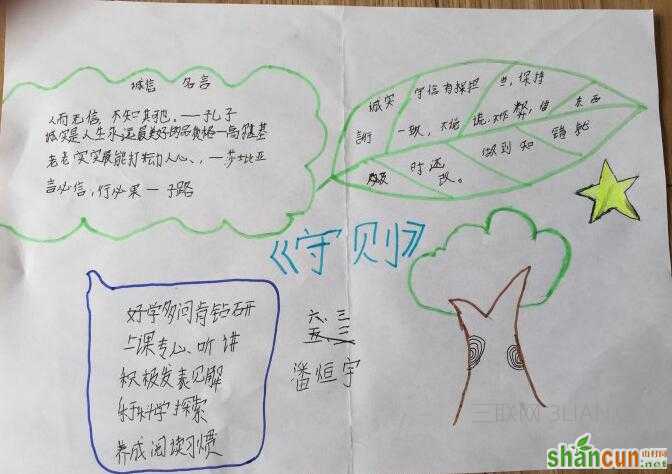 诚信 名言
人而无信,不知其可。——孔子
诚实是人生永远最美好的品格——高雅基
老老实实最能打动人心、——莎士比亚
言必信,行必果——子路
诚实 守信有 担当,保持
言行一致,不说谎,不作弊,借东西
及时还 做到知错就
改。
《守则》
好学多问肯钻研
上课专心听讲
积极发表见解
乐于科学探索
养成阅读习惯
六、三
五 三
潘烜宇
三联网 3LIAN
shancun